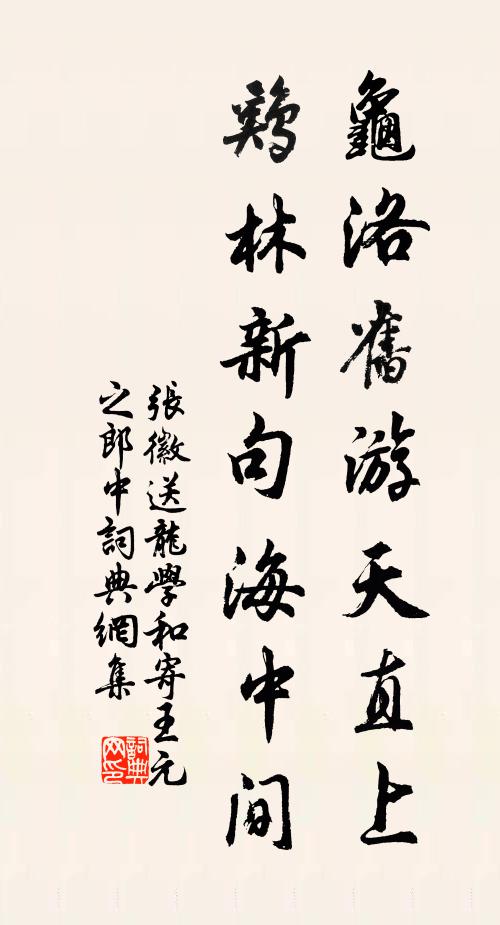 龜洛舊游天直上
鷄林新句海中間
張徽送龍學和寄王元
之郎中詞典網集
詞典